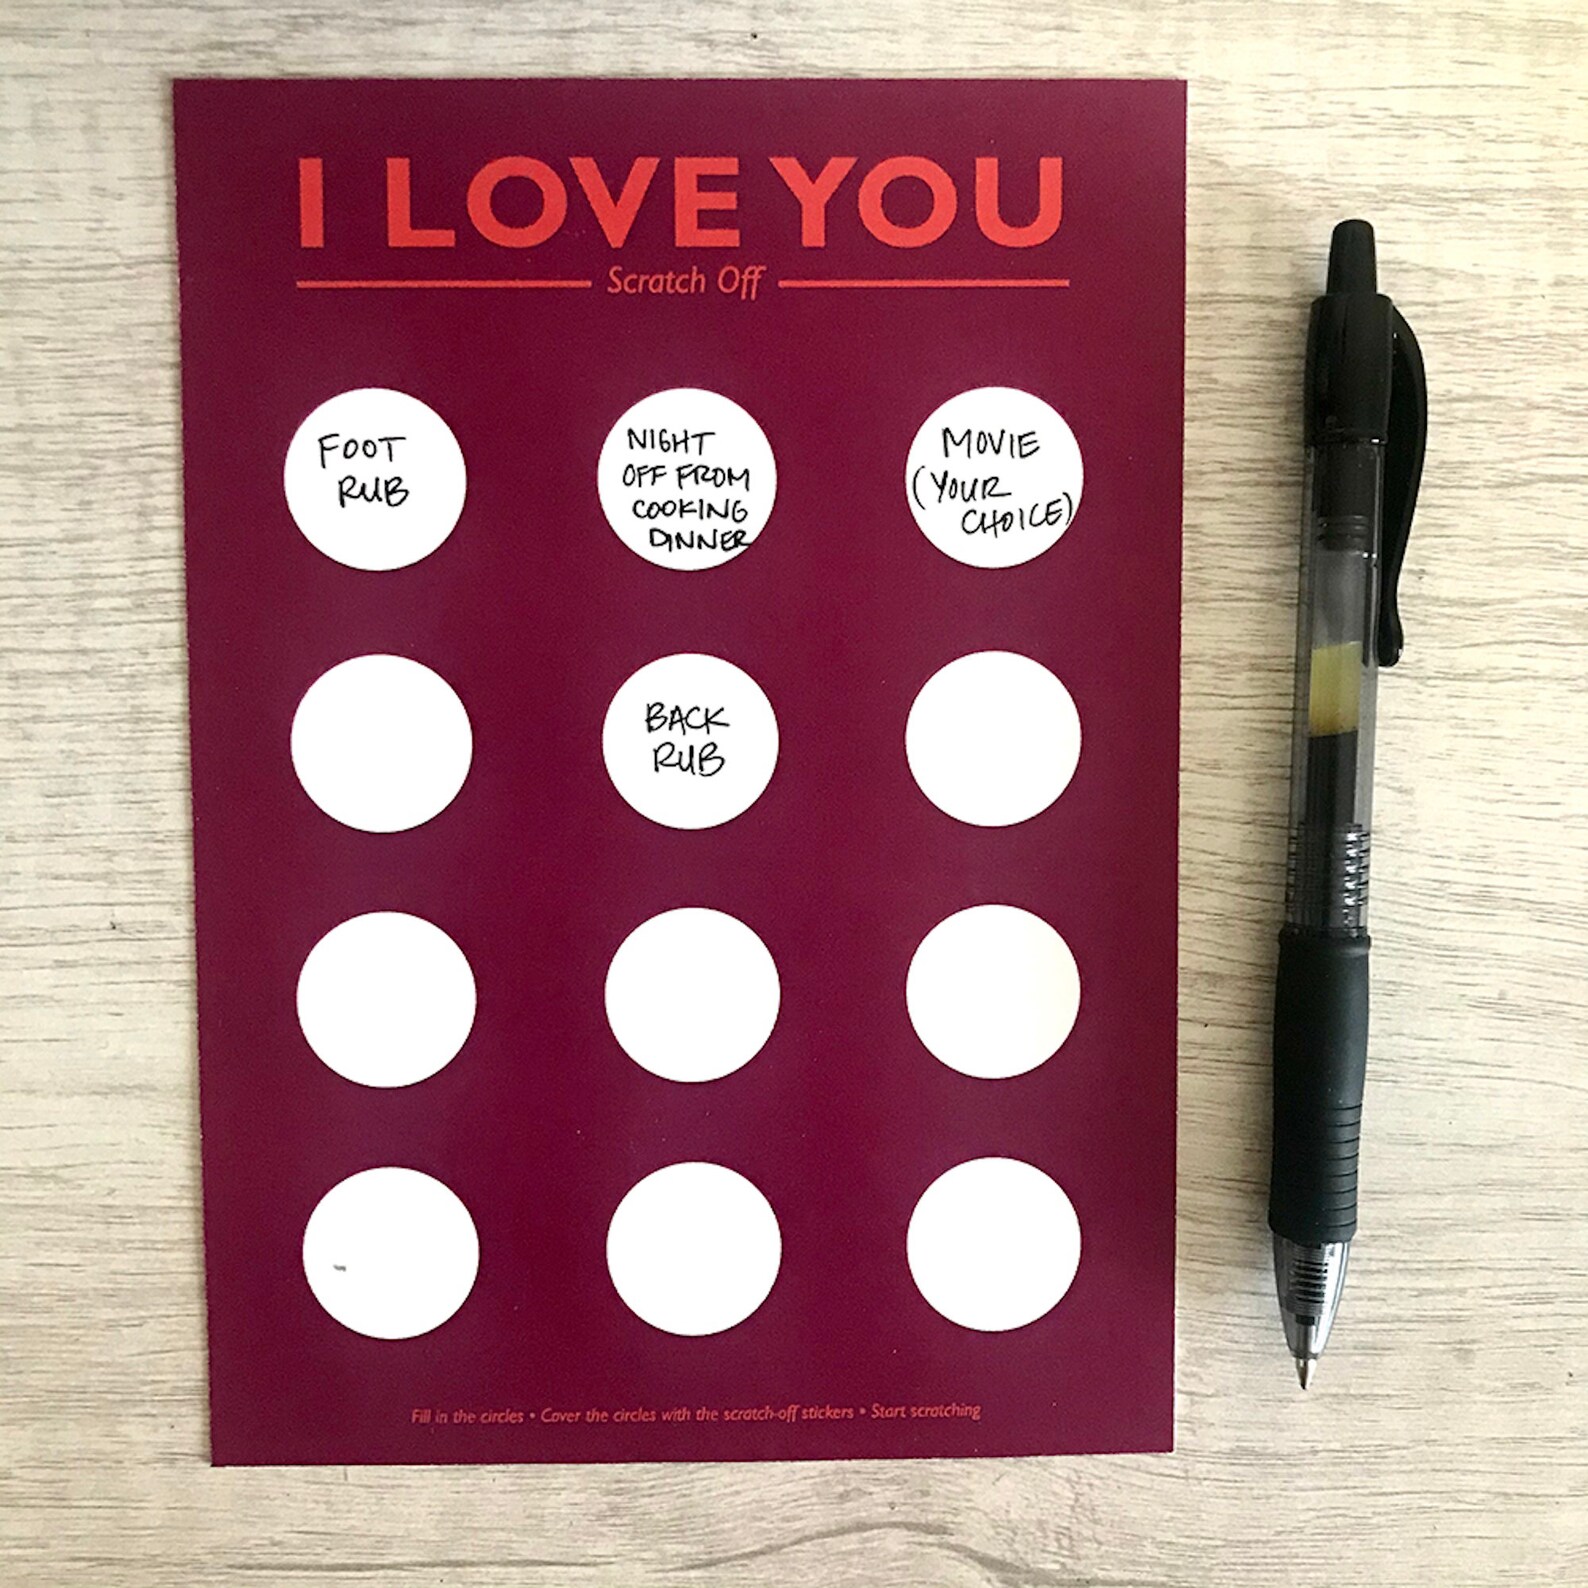 I LOVE YOU
Scratch Off
FOOT
RUB
NIGHT
OFF FROM
COOKING
DINNER
MOVIE
(YOUR
CHOICE)
BACK
RUB
Fill in the circles • Cover the circles with the scratch-off stickers • Start scratching